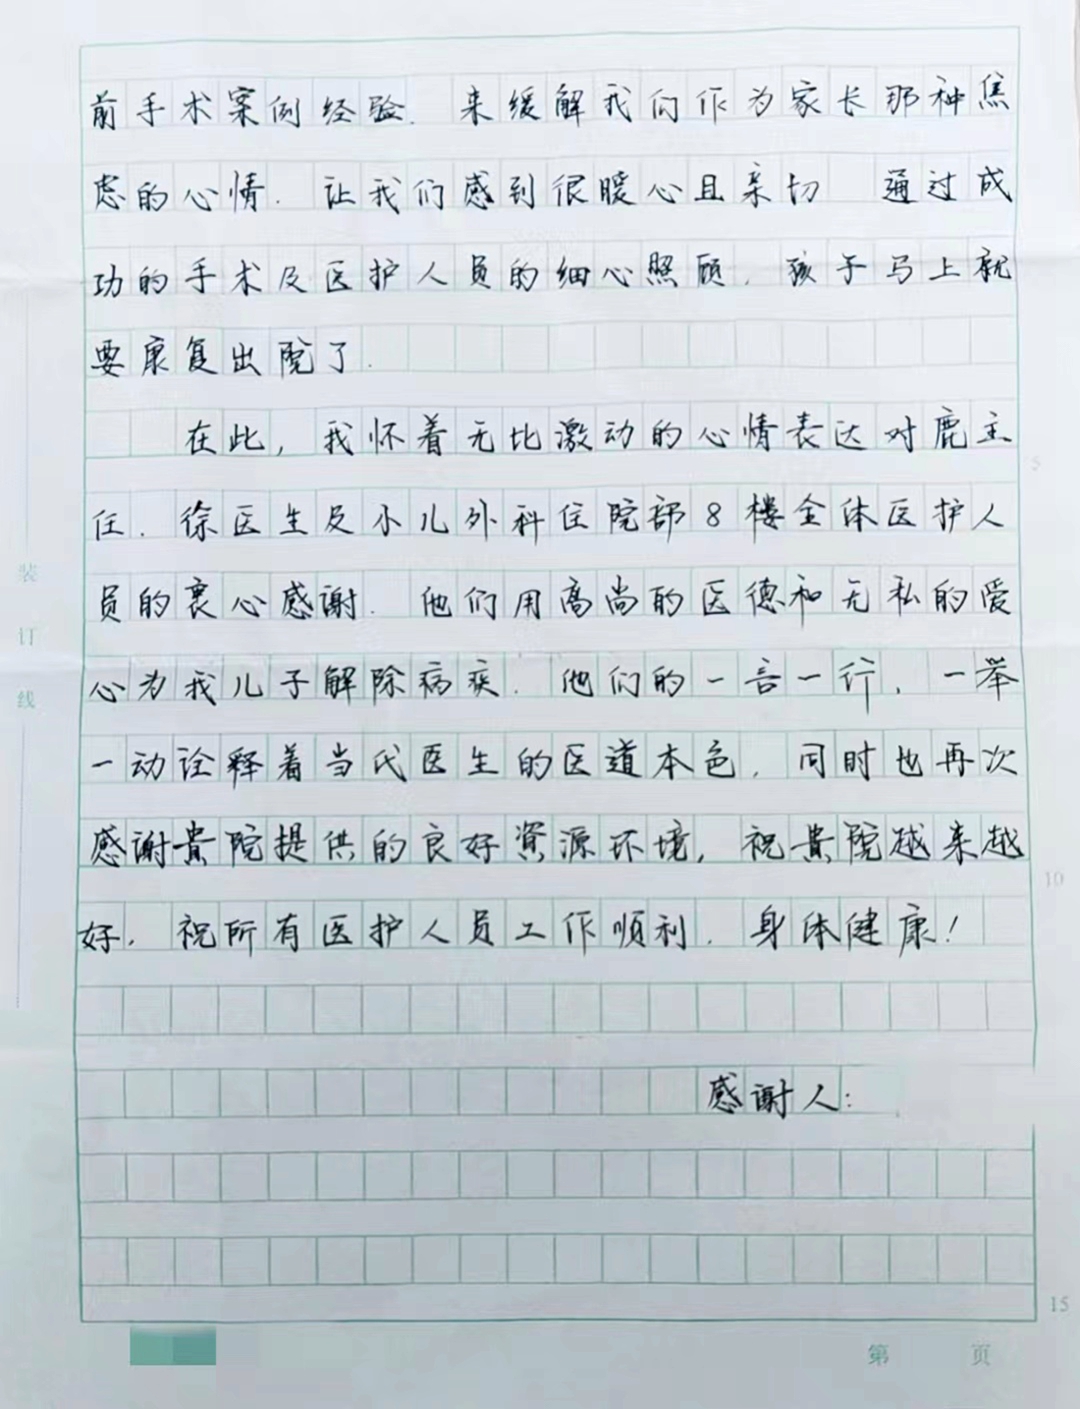 前手术案例经验.来缓解我们作为家长那种焦
虑的心情.让我们感到很暖心且亲切 通过成
功的手术及医护人员的细心照顾.孩子马上就
要康复出院了.
在此,我怀着无比激动的心情表达对鹿主
任.徐医生及小儿外科住院部8楼全体医护人
员的衷心感谢.他们用高尚的医德和无私的爱
心为我儿子解除病疾.他们的一言一行,一举
一动诠释着当代医生的医道本色.同时也再次
感谢贵院提供的良好资源环境,祝贵院越来越
好,祝所有医护人员工作顺利.身体健康!
感谢人:
装
订
线
5
10
15
第 页